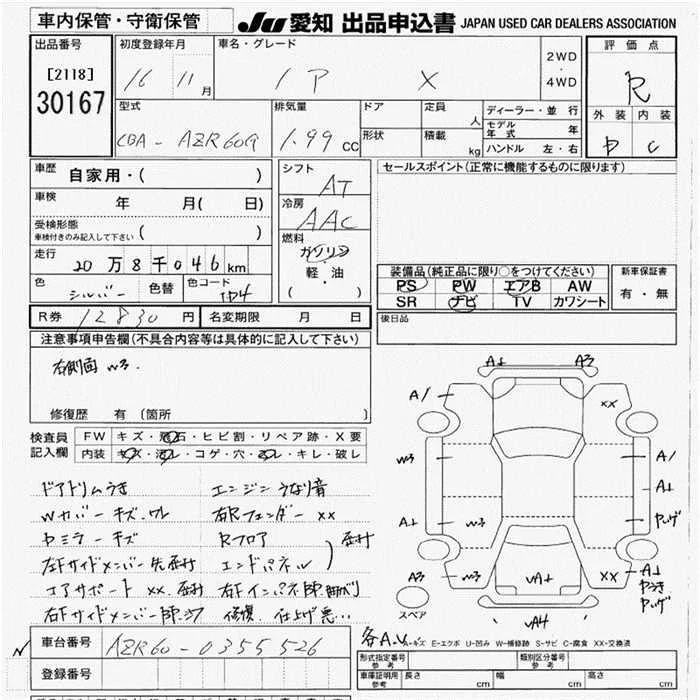 車内保管・守衛保管
JU 愛知 出品申込書 JAPAN USED CAR DEALERS ASSOCIATION
出品番号
[2118]
30167
初度登録年月
16 11 月
車名・グレード
X
2WD
・
4WD
評価点
R
外装 内装
D C
型式
CBA-AZR60G
排気量
1.99 cc
ドア
定員 人
形状
積載 kg
ディーラー・並行
モデル年式 年
ハンドル 左・右
車歴 自家用・( )
車検 年 月( 日)
受検形態
車検付きのみ記入して下さい ( )
走行 20万8千046km
色 シルバー 色替 色コード 1D4
シフト
AT
冷房
AAC
燃料
ガソリン
軽・油
( )
セールスポイント(正常に機能するものに限ります)
装備品(純正品に限り○をつけてください)
PS PW エアB AW
SR ナビ TV カワシート
新車保証書
有・無
R券 12830 円 名変期限 月 日
後日品
注意事項申告欄(不具合内容等は具体的に記入して下さい)
右側面 W3.
修復歴 有 〔箇所 〕
検査員記入欄
FW キズ・飛石・ヒビ割・リペア跡・X要
内装 キズ・汚レ・コゲ・穴・スレ・キレ・破レ
ドアトリムうき エンジンうなり音
Wカバーキズ・ワレ 右Rフェンダー XX
ドミラーキズ Rフロア
左Fサイドメンバー先歪付 エンドパネル 歪付
コアサポート XX.歪付 右Fインパネ部曲がり
右Fサイドメンバー部 修復、仕上げ悪…
A1 A3
A1 XX
W3 A1
A1
A1 W3 ヤハゲ
A3 W3 UA1 XX A1
ヤうき
ヤハゲ
スペア
UA4
各A.U
A-キズ E-エクボ U-凹み W-補修跡 S-サビ C-腐食 XX-交換済
車台番号 AZR60-0355526
登録番号
形式指定番号 参考
類別区分番号 参考
車庫証明用 参考 長さ cm 幅 cm 高さ cm